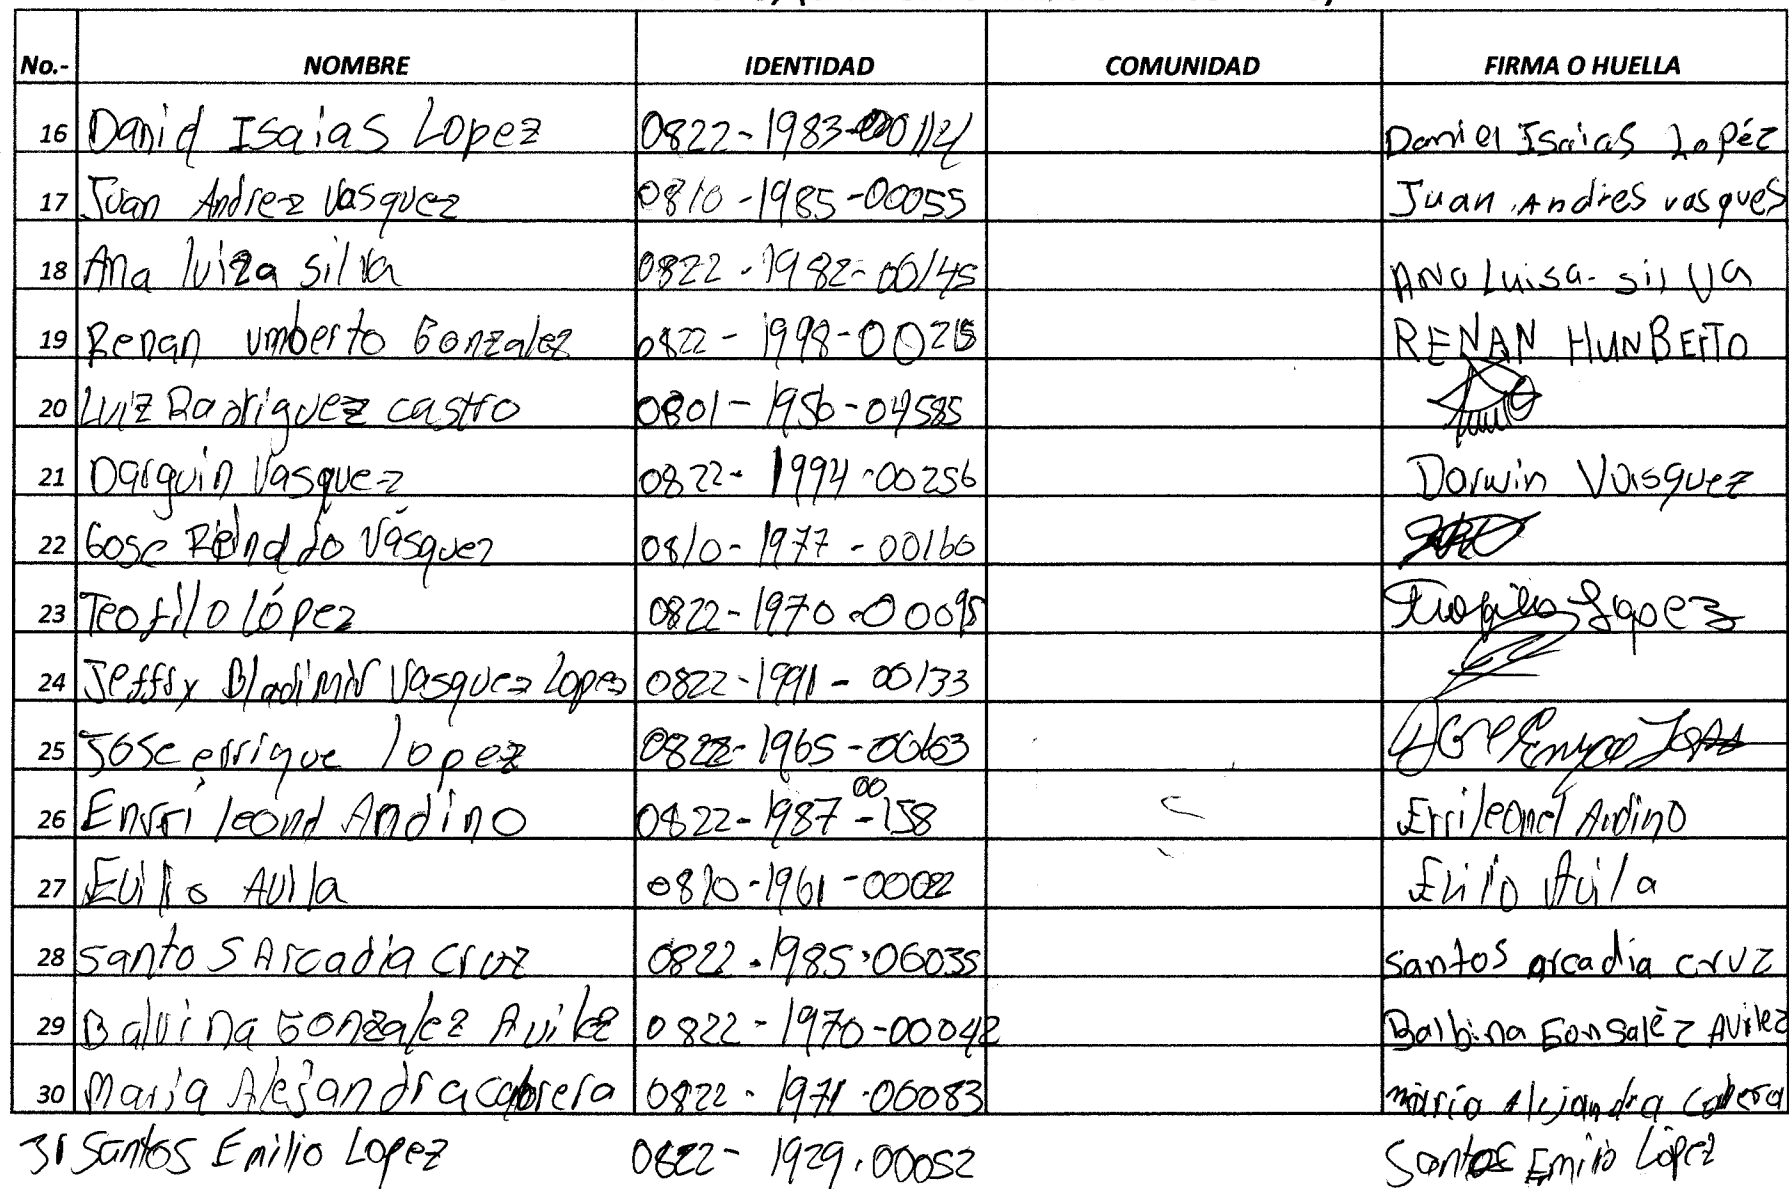 No.- NOMBRE IDENTIDAD COMUNIDAD FIRMA O HUELLA
16 Daniel Isaias Lopez 0822-1983-00114 Daniel Isaias Lopéz
17 Juan Andrez Vasquez 0810-1985-00055 Juan Andres vasques
18 Ana luiza silva 0822-1982-00145 Ana Luisa-silva
19 Renan umberto Gonzalez 0822-1998-00215 RENAN HUNBERTO
20 Luiz Radriguez castro 0801-1956-04585
21 Darguin Vasquez 0822-1994-00256 Darwin Vasquez
22 Gose Reinaldo Vásquez 0810-1977-00160
23 Teofilo lópez 0822-1970-00095 Lopez
24 Jeffry Bladimir Vasquez Lopez 0822-1991-00133
25 Jose enrrique lopez 0822-1965-00063
26 Enrri leonel Andino 0822-1987-00158 Erri leonel Andino
27 Evilio Avila 0810-1961-0002 Evilio Avila
28 santos Arcadia cruz 0822-1985-00035 santos arcadia cruz
29 Balvina Gonzalez Avilez 0822-1970-00042 Balbina Gonsaléz Avilez
30 Maria Alejandra cabrera 0822-1971-00083 maria Alejandra Cabrera
31 Santos Emilio Lopez 0822-1929-00052 Santos Emilio López